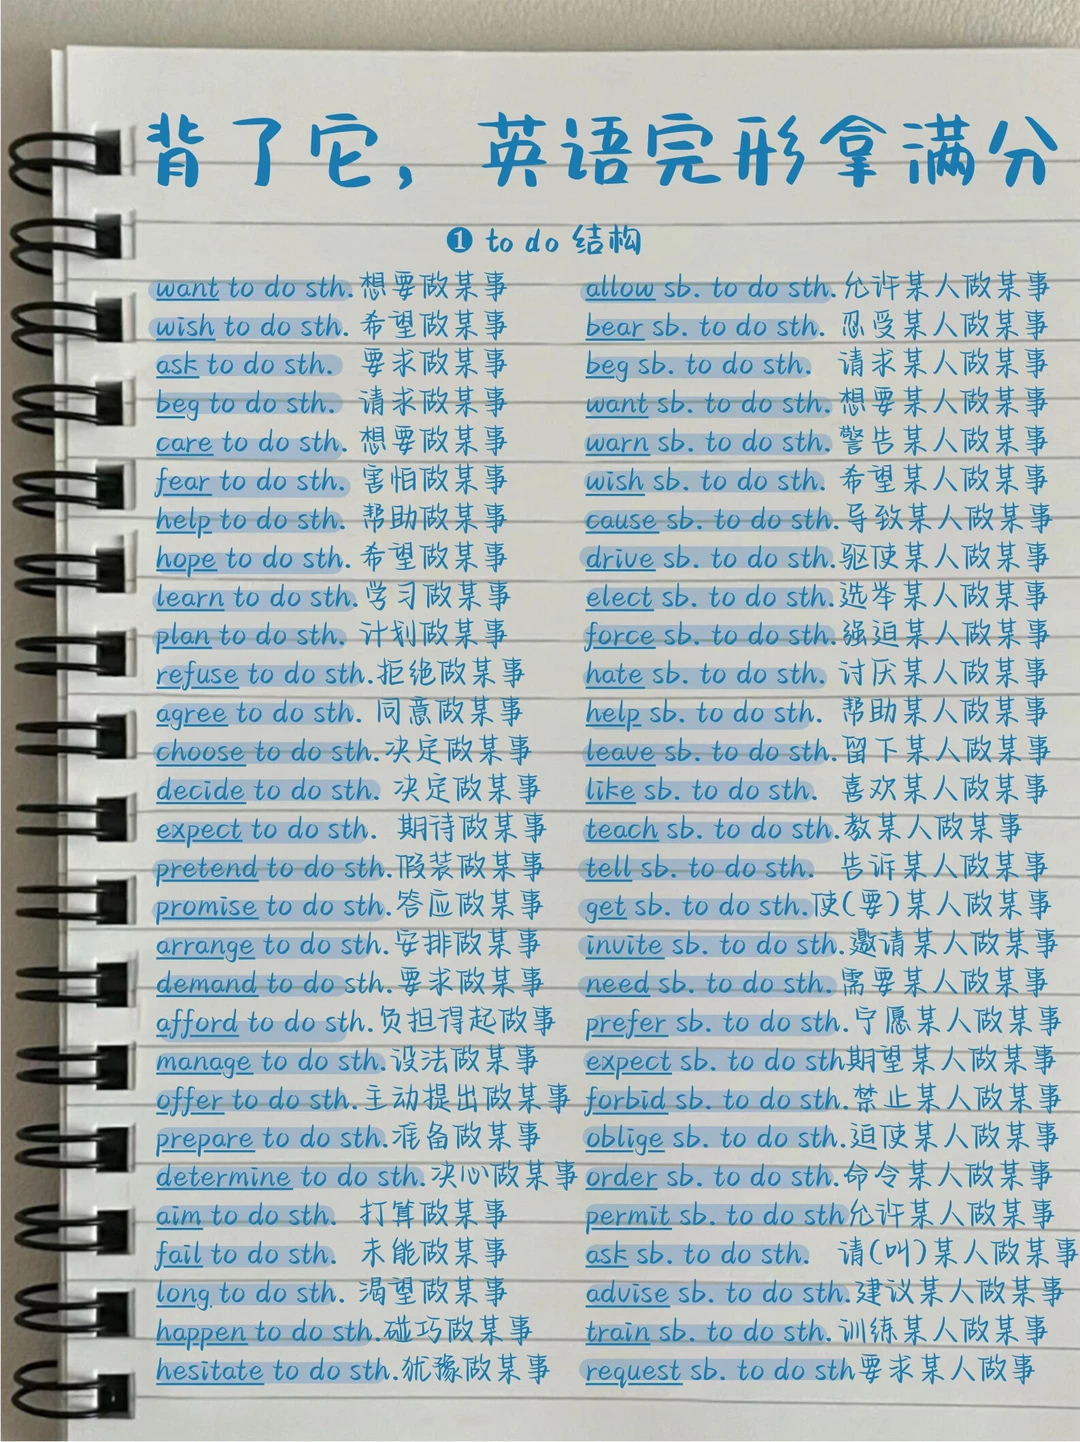 背了它，英语完形拿满分
❶ to do 结构
want to do sth.想要做某事
wish to do sth. 希望做某事
ask to do sth. 要求做某事
beg to do sth. 请求做某事
care to do sth. 想要做某事
fear to do sth. 害怕做某事
help to do sth. 帮助做某事
hope to do sth. 希望做某事
learn to do sth.学习做某事
plan to do sth. 计划做某事
refuse to do sth.拒绝做某事
agree to do sth. 同意做某事
choose to do sth.决定做某事
decide to do sth. 决定做某事
expect to do sth. 期待做某事
pretend to do sth.假装做某事
promise to do sth.答应做某事
arrange to do sth.安排做某事
demand to do sth.要求做某事
afford to do sth.负担得起做事
manage to do sth.设法做某事
offer to do sth.主动提出做某事
prepare to do sth.准备做某事
determine to do sth.决心做某事
aim to do sth. 打算做某事
fail to do sth. 未能做某事
long to do sth. 渴望做某事
happen to do sth.碰巧做某事
hesitate to do sth.犹豫做某事
allow sb. to do sth.允许某人做某事
bear sb. to do sth. 忍受某人做某事
beg sb. to do sth. 请求某人做某事
want sb. to do sth. 想要某人做某事
warn sb. to do sth. 警告某人做某事
wish sb. to do sth. 希望某人做某事
cause sb. to do sth.导致某人做某事
drive sb. to do sth.驱使某人做某事
elect sb. to do sth.选举某人做某事
force sb. to do sth.强迫某人做某事
hate sb. to do sth. 讨厌某人做某事
help sb. to do sth. 帮助某人做某事
leave sb. to do sth.留下某人做某事
like sb. to do sth. 喜欢某人做某事
teach sb. to do sth.教某人做某事
tell sb. to do sth. 告诉某人做某事
get sb. to do sth.使(要)某人做某事
invite sb. to do sth.邀请某人做某事
need sb. to do sth.需要某人做某事
prefer sb. to do sth.宁愿某人做某事
expect sb. to do sth期望某人做某事
forbid sb. to do sth.禁止某人做某事
oblige sb. to do sth.迫使某人做某事
order sb. to do sth.命令某人做某事
permit sb. to do sth允许某人做某事
ask sb. to do sth. 请(叫)某人做某事
advise sb. to do sth.建议某人做某事
train sb. to do sth.训练某人做某事
request sb. to do sth要求某人做事